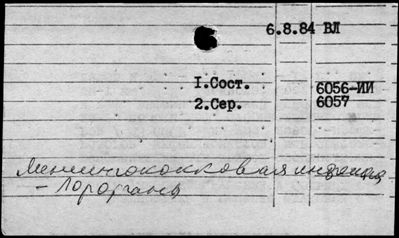 6.8.84 ВЛ
I.Сост. 6056-ИИ
2.Сер. 6057
Менингококковая инфекция
- Лорорганы